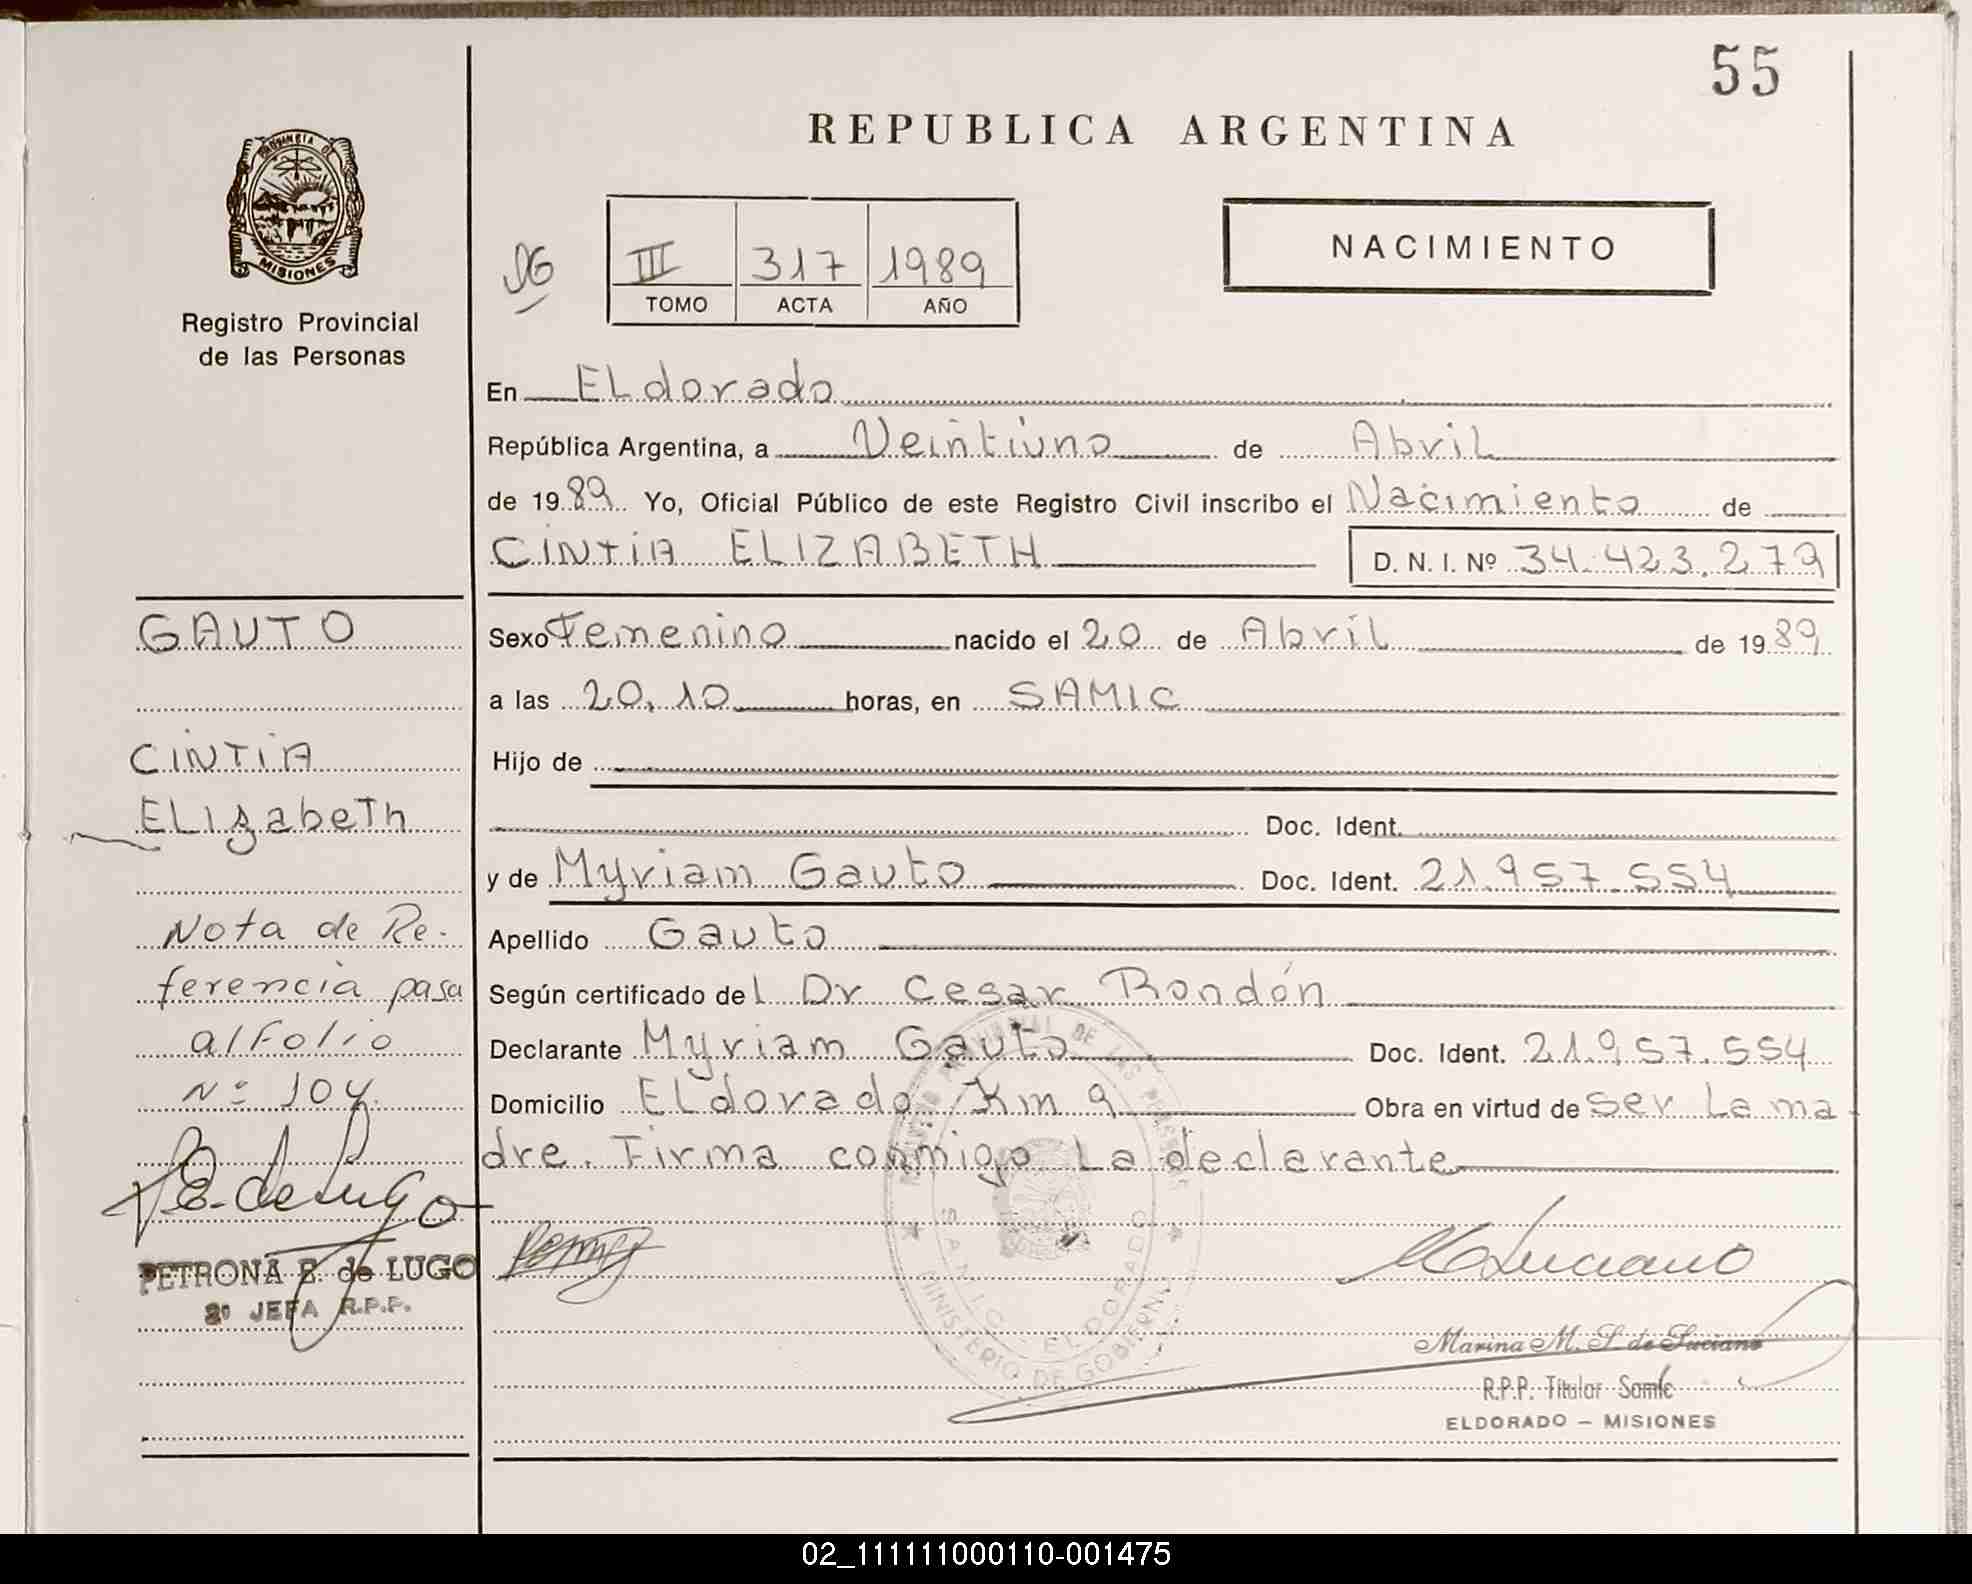 55
REPUBLICA ARGENTINA
PROVINCIA DE
MISIONES
Registro Provincial
de las Personas
III 317 1989
TOMO ACTA AÑO
NACIMIENTO
En ELdorado
República Argentina, a Veintiuno de Abril
de 1989 Yo, Oficial Público de este Registro Civil inscribo el Nacimiento de
CINTIA ELIZABETH D. N. I. Nº 34.423.279
Sexo Femenino nacido el 20 de Abril de 1989
a las 20,10 horas, en SAMIC
Hijo de
Doc. Ident.
y de Myriam Gauto Doc. Ident. 21.957.554
Apellido Gauto
Según certificado del Dr Cesar Rondón
Declarante Myriam Gauto Doc. Ident. 21.957.554
Domicilio ELdorado Km 9 Obra en virtud de ser La ma
dre. Firma conmigo La declarante
GAUTO
CINTIA
ELIzabeTh
Nota de Re-
ferencia pasa
al Folio
Nº 104
P E. de Lugo
PETRONA E. de LUGO
2º JEFA R.P.P.
REGISTRO PROVINCIAL DE LAS PERSONAS
SAMIC - ELDORADO
MINISTERIO DE GOBIERNO
Luciano
Marina M. S. de Luciano
R.P.P. Titular Samic
ELDORADO – MISIONES
02_111111000110-001475